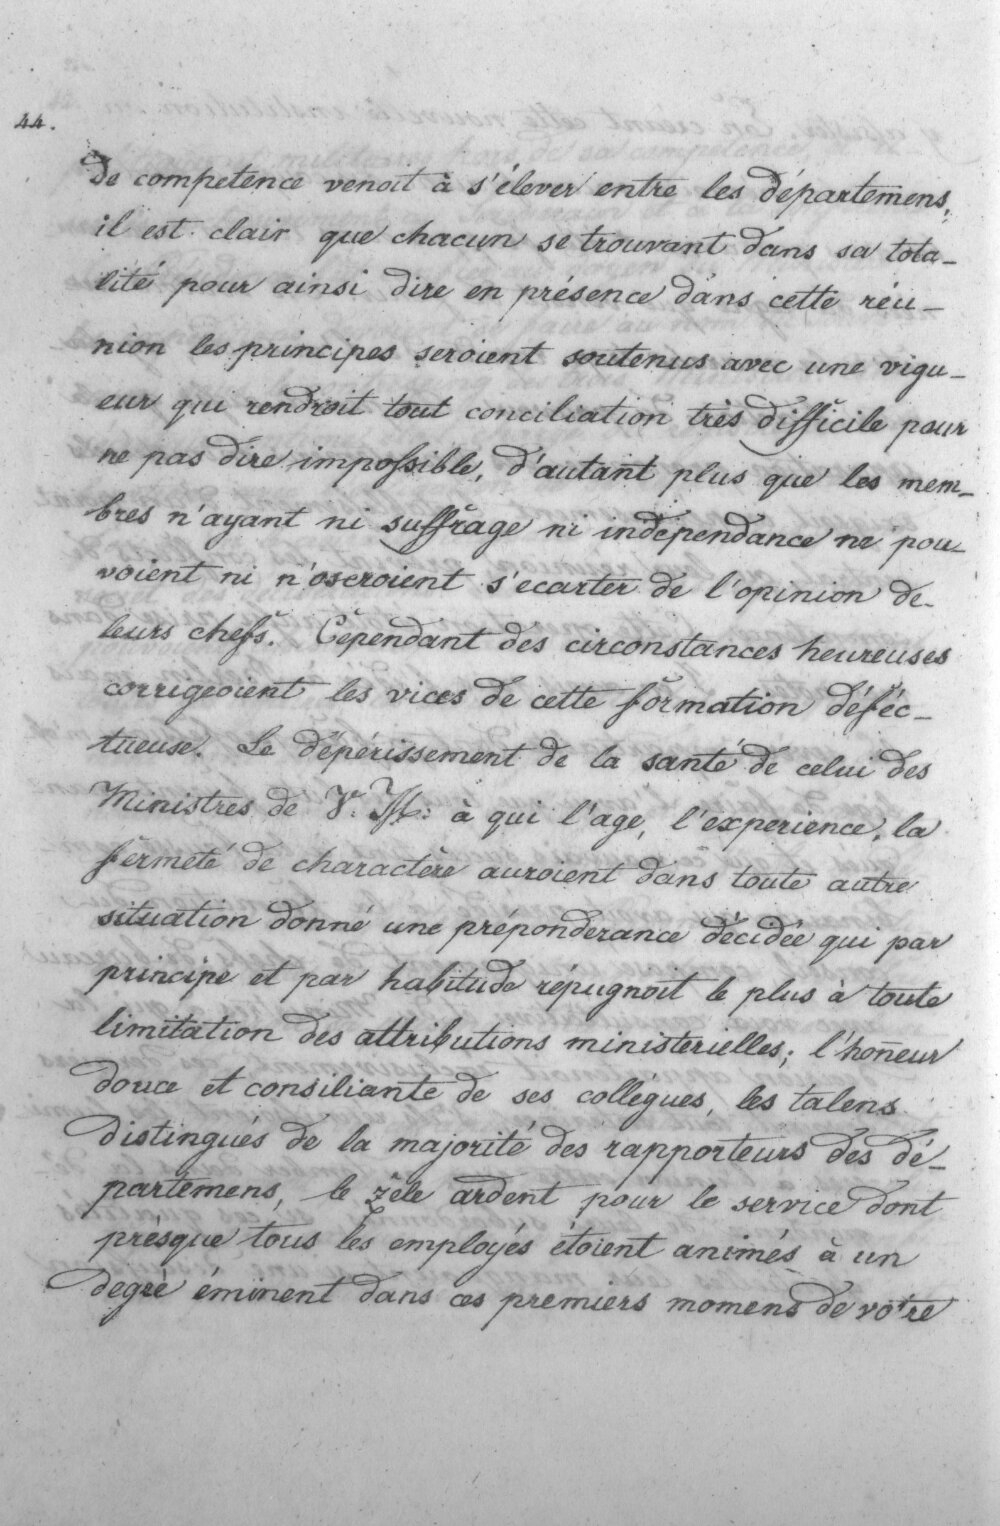 44.
de competence venoit à s'élever entre les départemens,
il est clair que chacun se trouvant dans sa tota-
lité pour ainsi dire en présence dans cette réu-
nion les principes seroient soutenus avec une vigu-
eur qui rendroit tout conciliation très difficile pour
ne pas dire impossible, d'autant plus que les mem-
bres n'ayant ni suffrage ni indépendance ne pou-
voient ni n'oseroient s'ecarter de l'opinion de
leurs chefs. Cependant des circonstances heureuses
corrigeoient les vices de cette formation déféc-
tueuse. Le dépérissement de la santé de celui des
Ministres de V. M. à qui l'age, l'experience, la
fermeté de charactère auroient dans toute autre
situation donné une préponderance décidée qui par
principe et par habitude répugnoit le plus à toute
limitation des attributions ministerielles; l'hoñeur
douce et consiliante de ses collégues, les talens
distingués de la majorité des rapporteurs des dé-
partemens, le zèle ardent pour le service dont
présque tous les employés étoient animés à un
degrè éminent dans ces premiers momens de votre